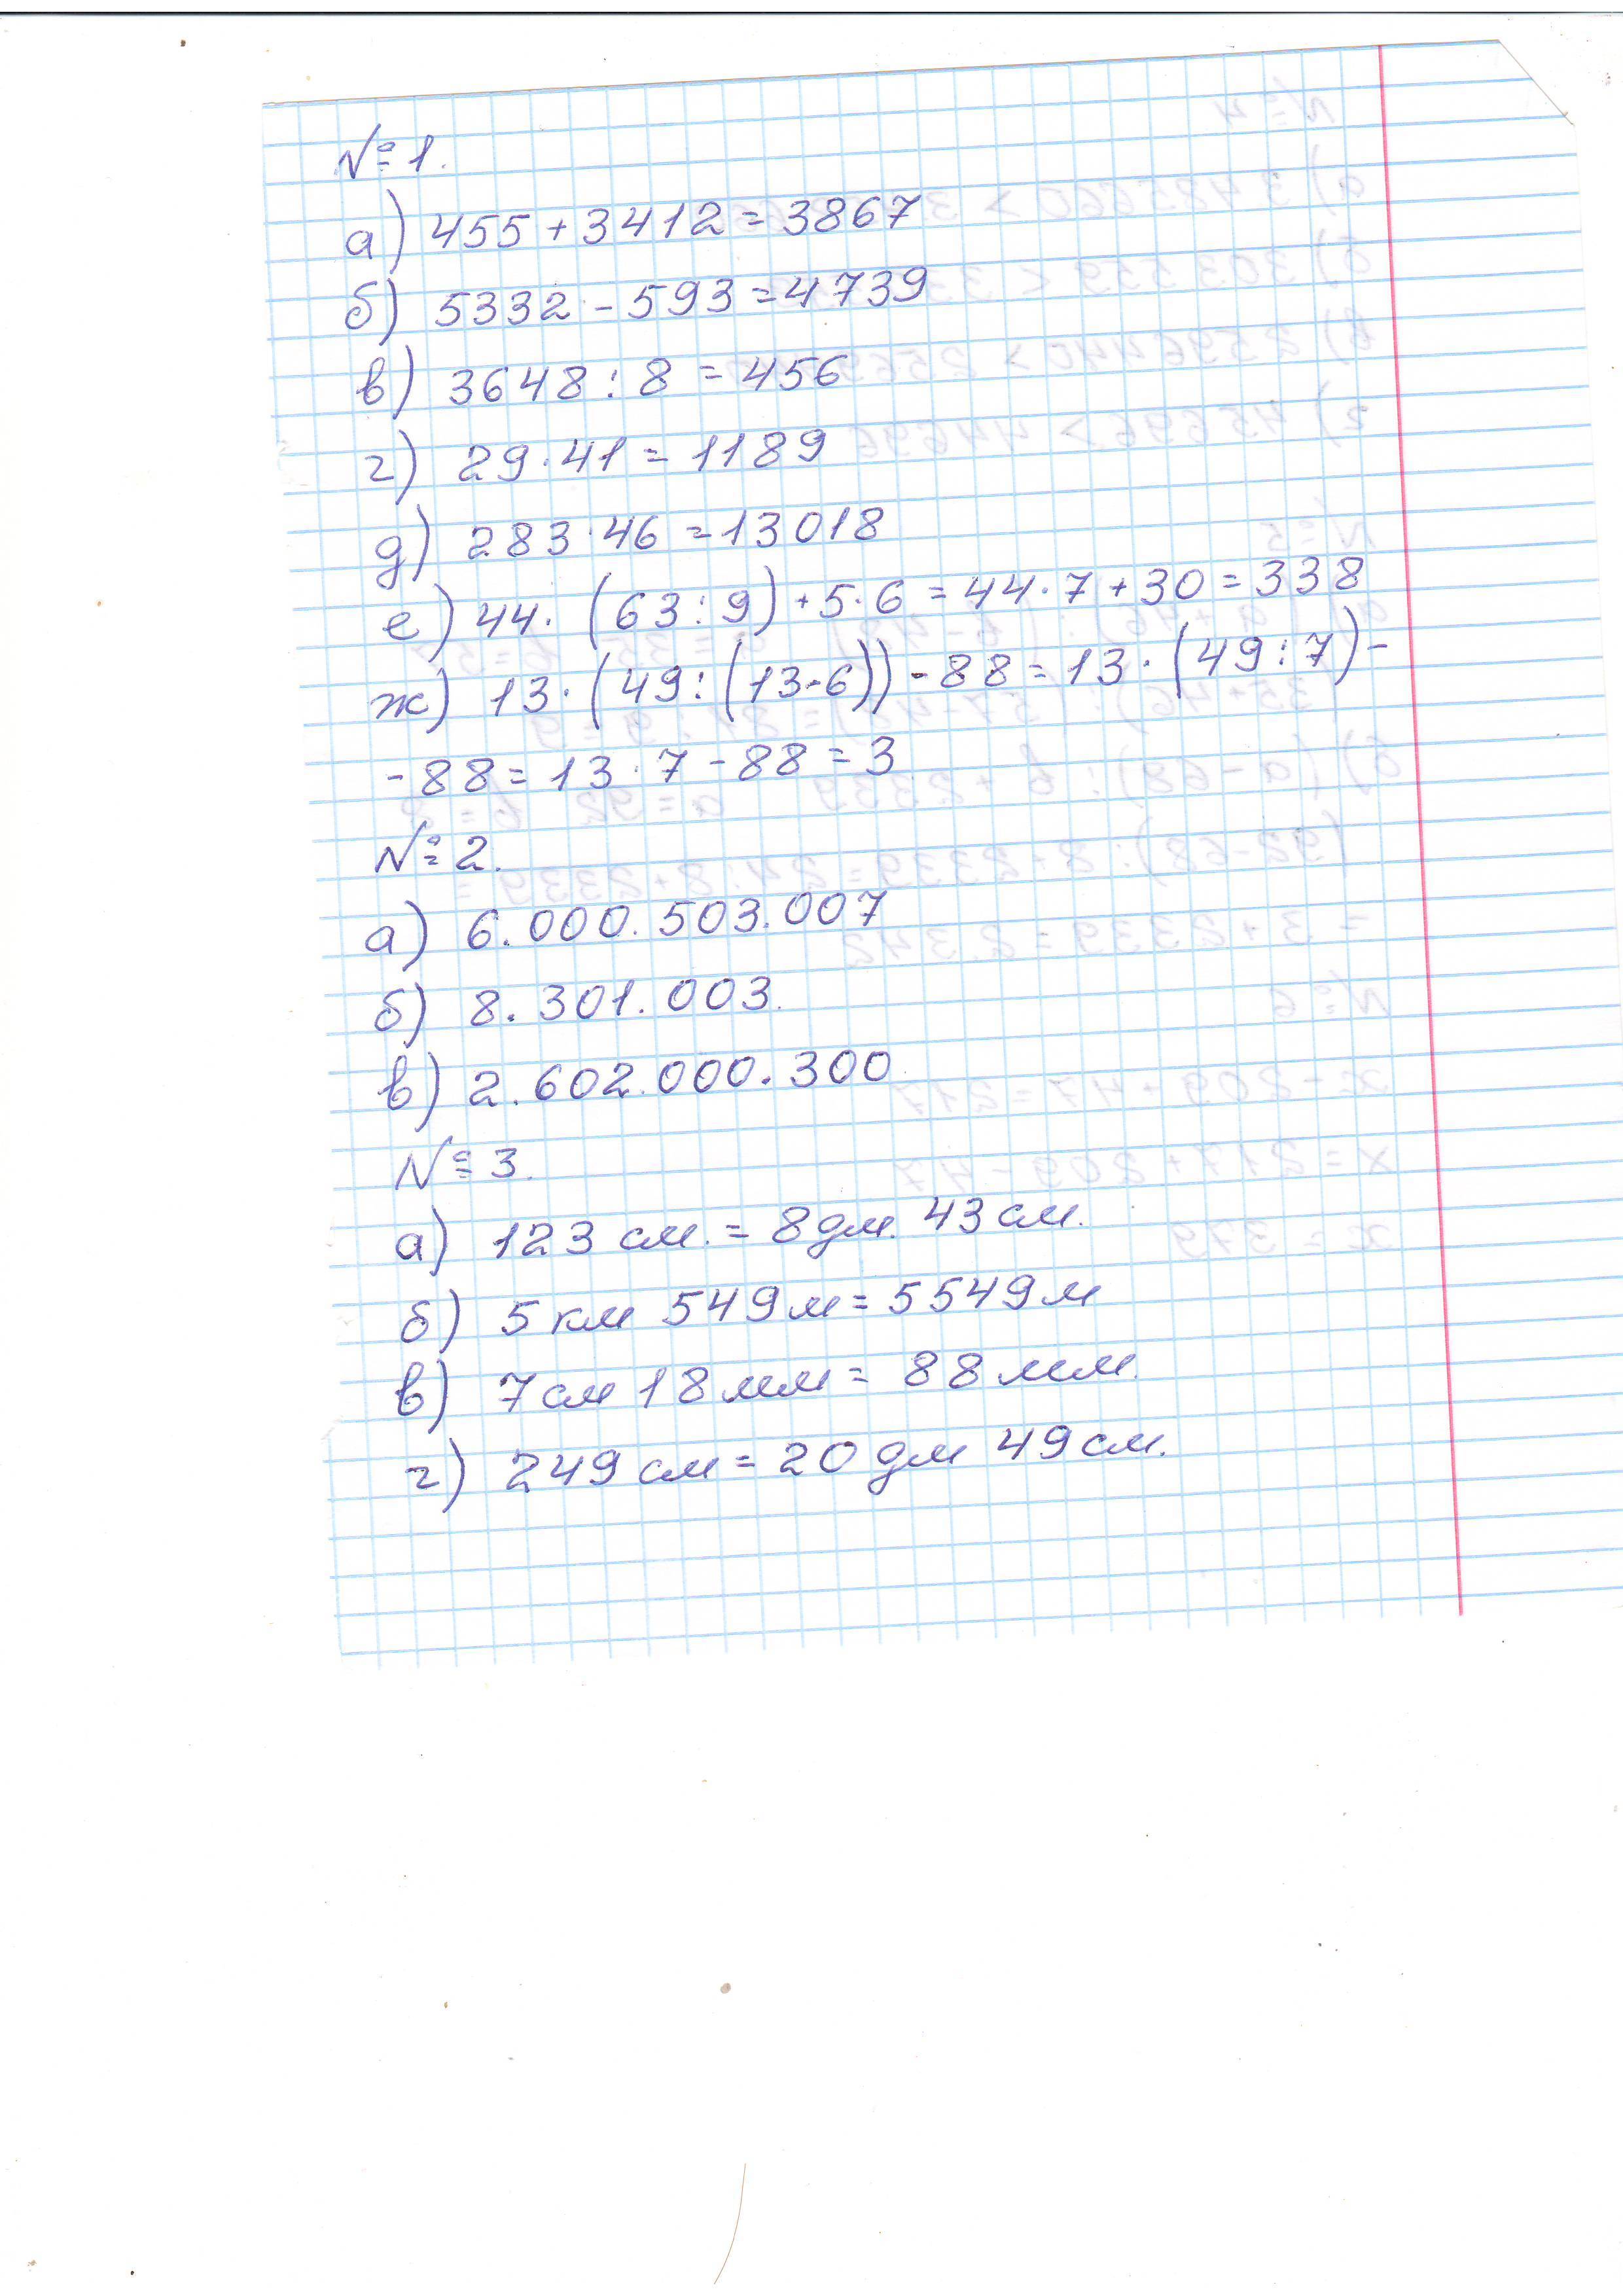 № 1.
а) 455 + 3412 = 3867
б) 5332 - 593 = 4739
в) 3648 : 8 = 456
г) 29 · 41 = 1189
д) 283 · 46 = 13018
е) 44 · (63 : 9) + 5 · 6 = 44 · 7 + 30 = 338
ж) 13 · (49 : (13 - 6)) - 88 = 13 · (49 : 7) -
- 88 = 13 · 7 - 88 = 3
№ 2.
а) 6.000.503.007
б) 8.301.003.
в) 2.602.000.300
№ 3.
а) 123 см. = 8 дм. 43 см.
б) 5 км 549 м = 5549 м
в) 7 см 18 мм = 88 мм.
г) 249 см = 20 дм 49 см.